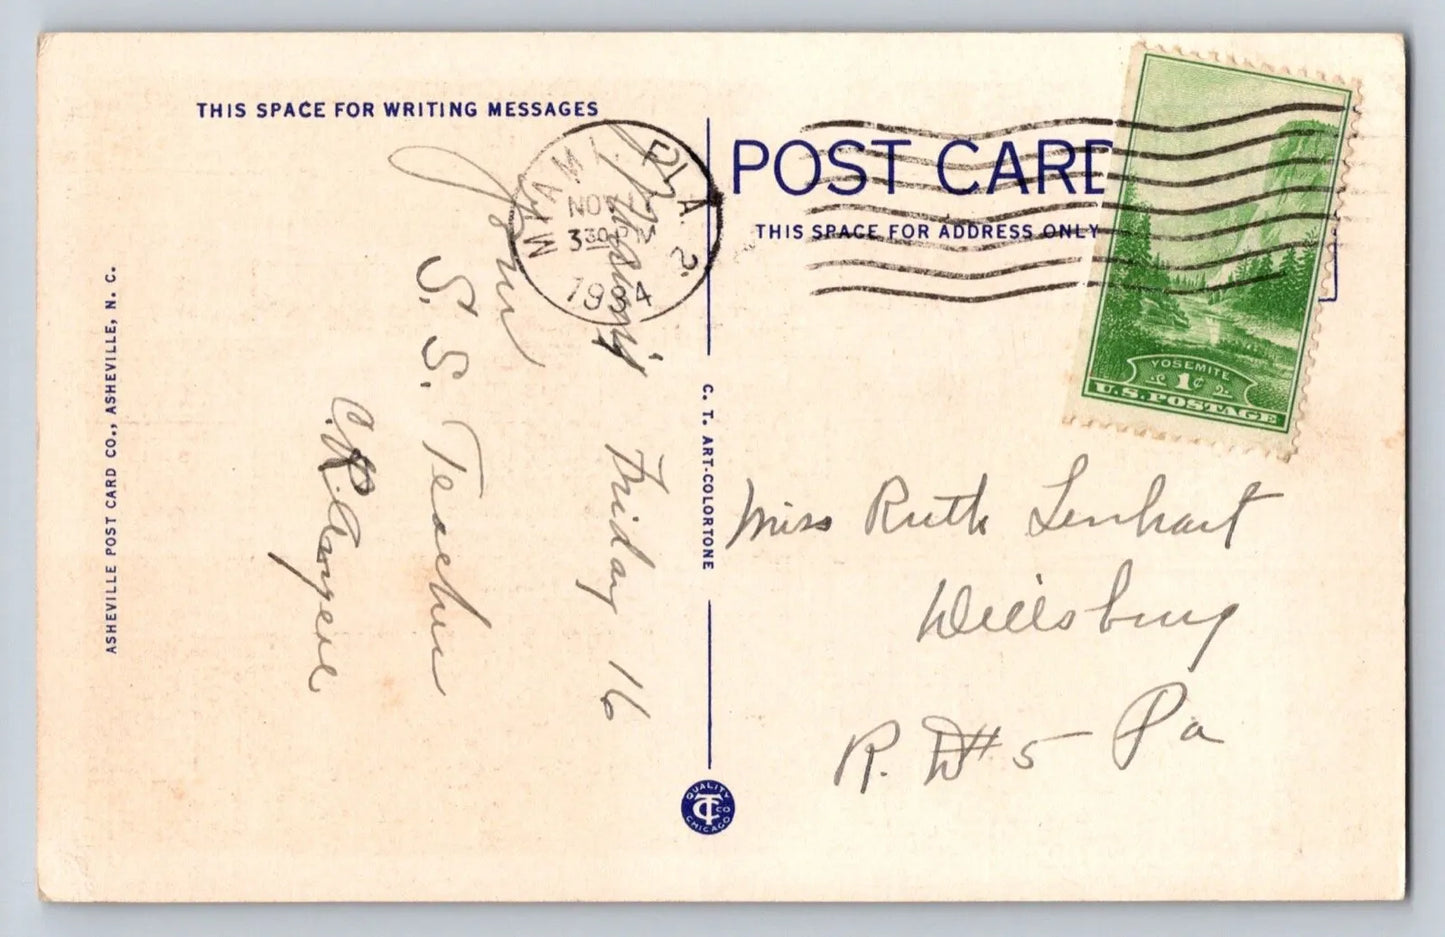 THIS SPACE FOR WRITING MESSAGES
POST CARD
THIS SPACE FOR ADDRESS ONLY
MIAMI, FLA. 2
NOV
3 30 PM
1934
YOSEMITE
1¢
U.S. POSTAGE
Miami
Friday 16
Your
S. S. Teacher
C. R.
Miss Ruth Lenhart
Wellsburg
R. D # 5 Pa
C. T. ART-COLORTONE
QUALITY
CT CO
CHICAGO
ASHEVILLE POST CARD CO., ASHEVILLE, N. C.